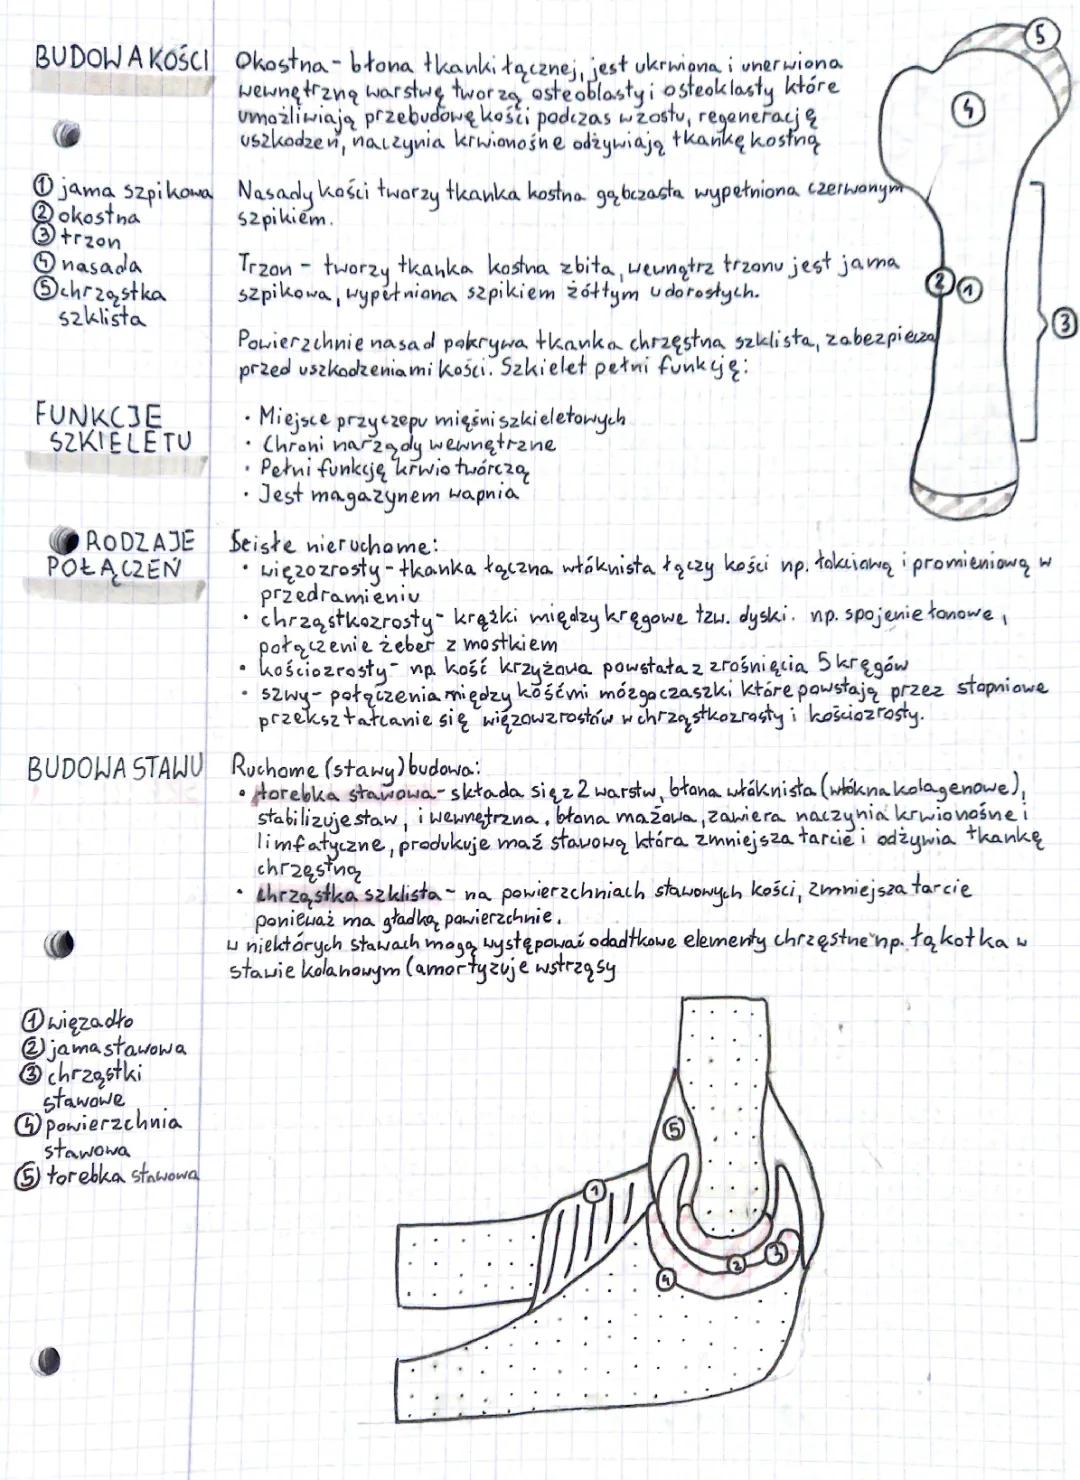 BUDOWA KOŚCI
Okostna - błona tkanki łącznej, jest ukrwiona i unerwiona
wewnętrzną warstwę tworzą osteoblasty i osteoklasty które
umożliwiają przebudowę kości podczas wzostu, regenerację
uszkodzeń, naczynia krwionośne odżywiają tkankę kostną
① jama szpikowa
② okostna
③ trzon
④ nasada
⑤ chrząstka
szklista
Nasady kości tworzy tkanka kostna gąbczasta wypełniona czerwonym
szpikiem.
Trzon - tworzy tkanka kostna zbita, wewnątrz trzonu jest jama
szpikowa, wypełniona szpikiem żółtym u dorosłych.
Powierzchnie nasad pokrywa tkanka chrzęstna szklista, zabezpiecza
przed uszkodzeniami kości. Szkielet pełni funkcję:
5
4
2
1
3
FUNKCJE
SZKIELETU
• Miejsce przyczepu mięśni szkieletowych
• Chroni narządy wewnętrzne
• Pełni funkcję krwiotwórczą
• Jest magazynem wapnia
RODZAJE
POŁĄCZEŃ
Ścisłe nieruchome:
• więzozrosty - tkanka łączna włóknista łączy kości np. łokciową i promieniową w
przedramieniu
• chrząstkozrosty - krążki między kręgowe tzw. dyski. np. spojenie łonowe,
połączenie żeber z mostkiem
• kościozrosty - np. kość krzyżowa powstała z zrośnięcia 5 kręgów
• szwy - połączenia między kośćmi mózgoczaszki które powstają przez stopniowe
przekształcanie się więzowzrostów w chrząstkozrosty i kościozrosty.
BUDOWA STAWU
Ruchome (stawy) budowa:
• torebka stawowa - składa się z 2 warstw, błona włóknista (włókna kolagenowe),
stabilizuje staw, i wewnętrzna. błona maźowa, zawiera naczynia krwionośne i
limfatyczne, produkuje maź stawową która zmniejsza tarcie i odżywia tkankę
chrzęstną
• chrząstka szklista - na powierzchniach stawowych kości, zmniejsza tarcie
ponieważ ma gładką powierzchnie.
w niektórych stawach mogą występować odadtkowe elementy chrzęstne np. łąkotka w
stawie kolanowym (amortyzuje wstrząsy
① więzadło
② jama stawowa
③ chrząstki
stawowe
④ powierzchnia
stawowa
⑤ torebka stawowa
5
1
2
3
4